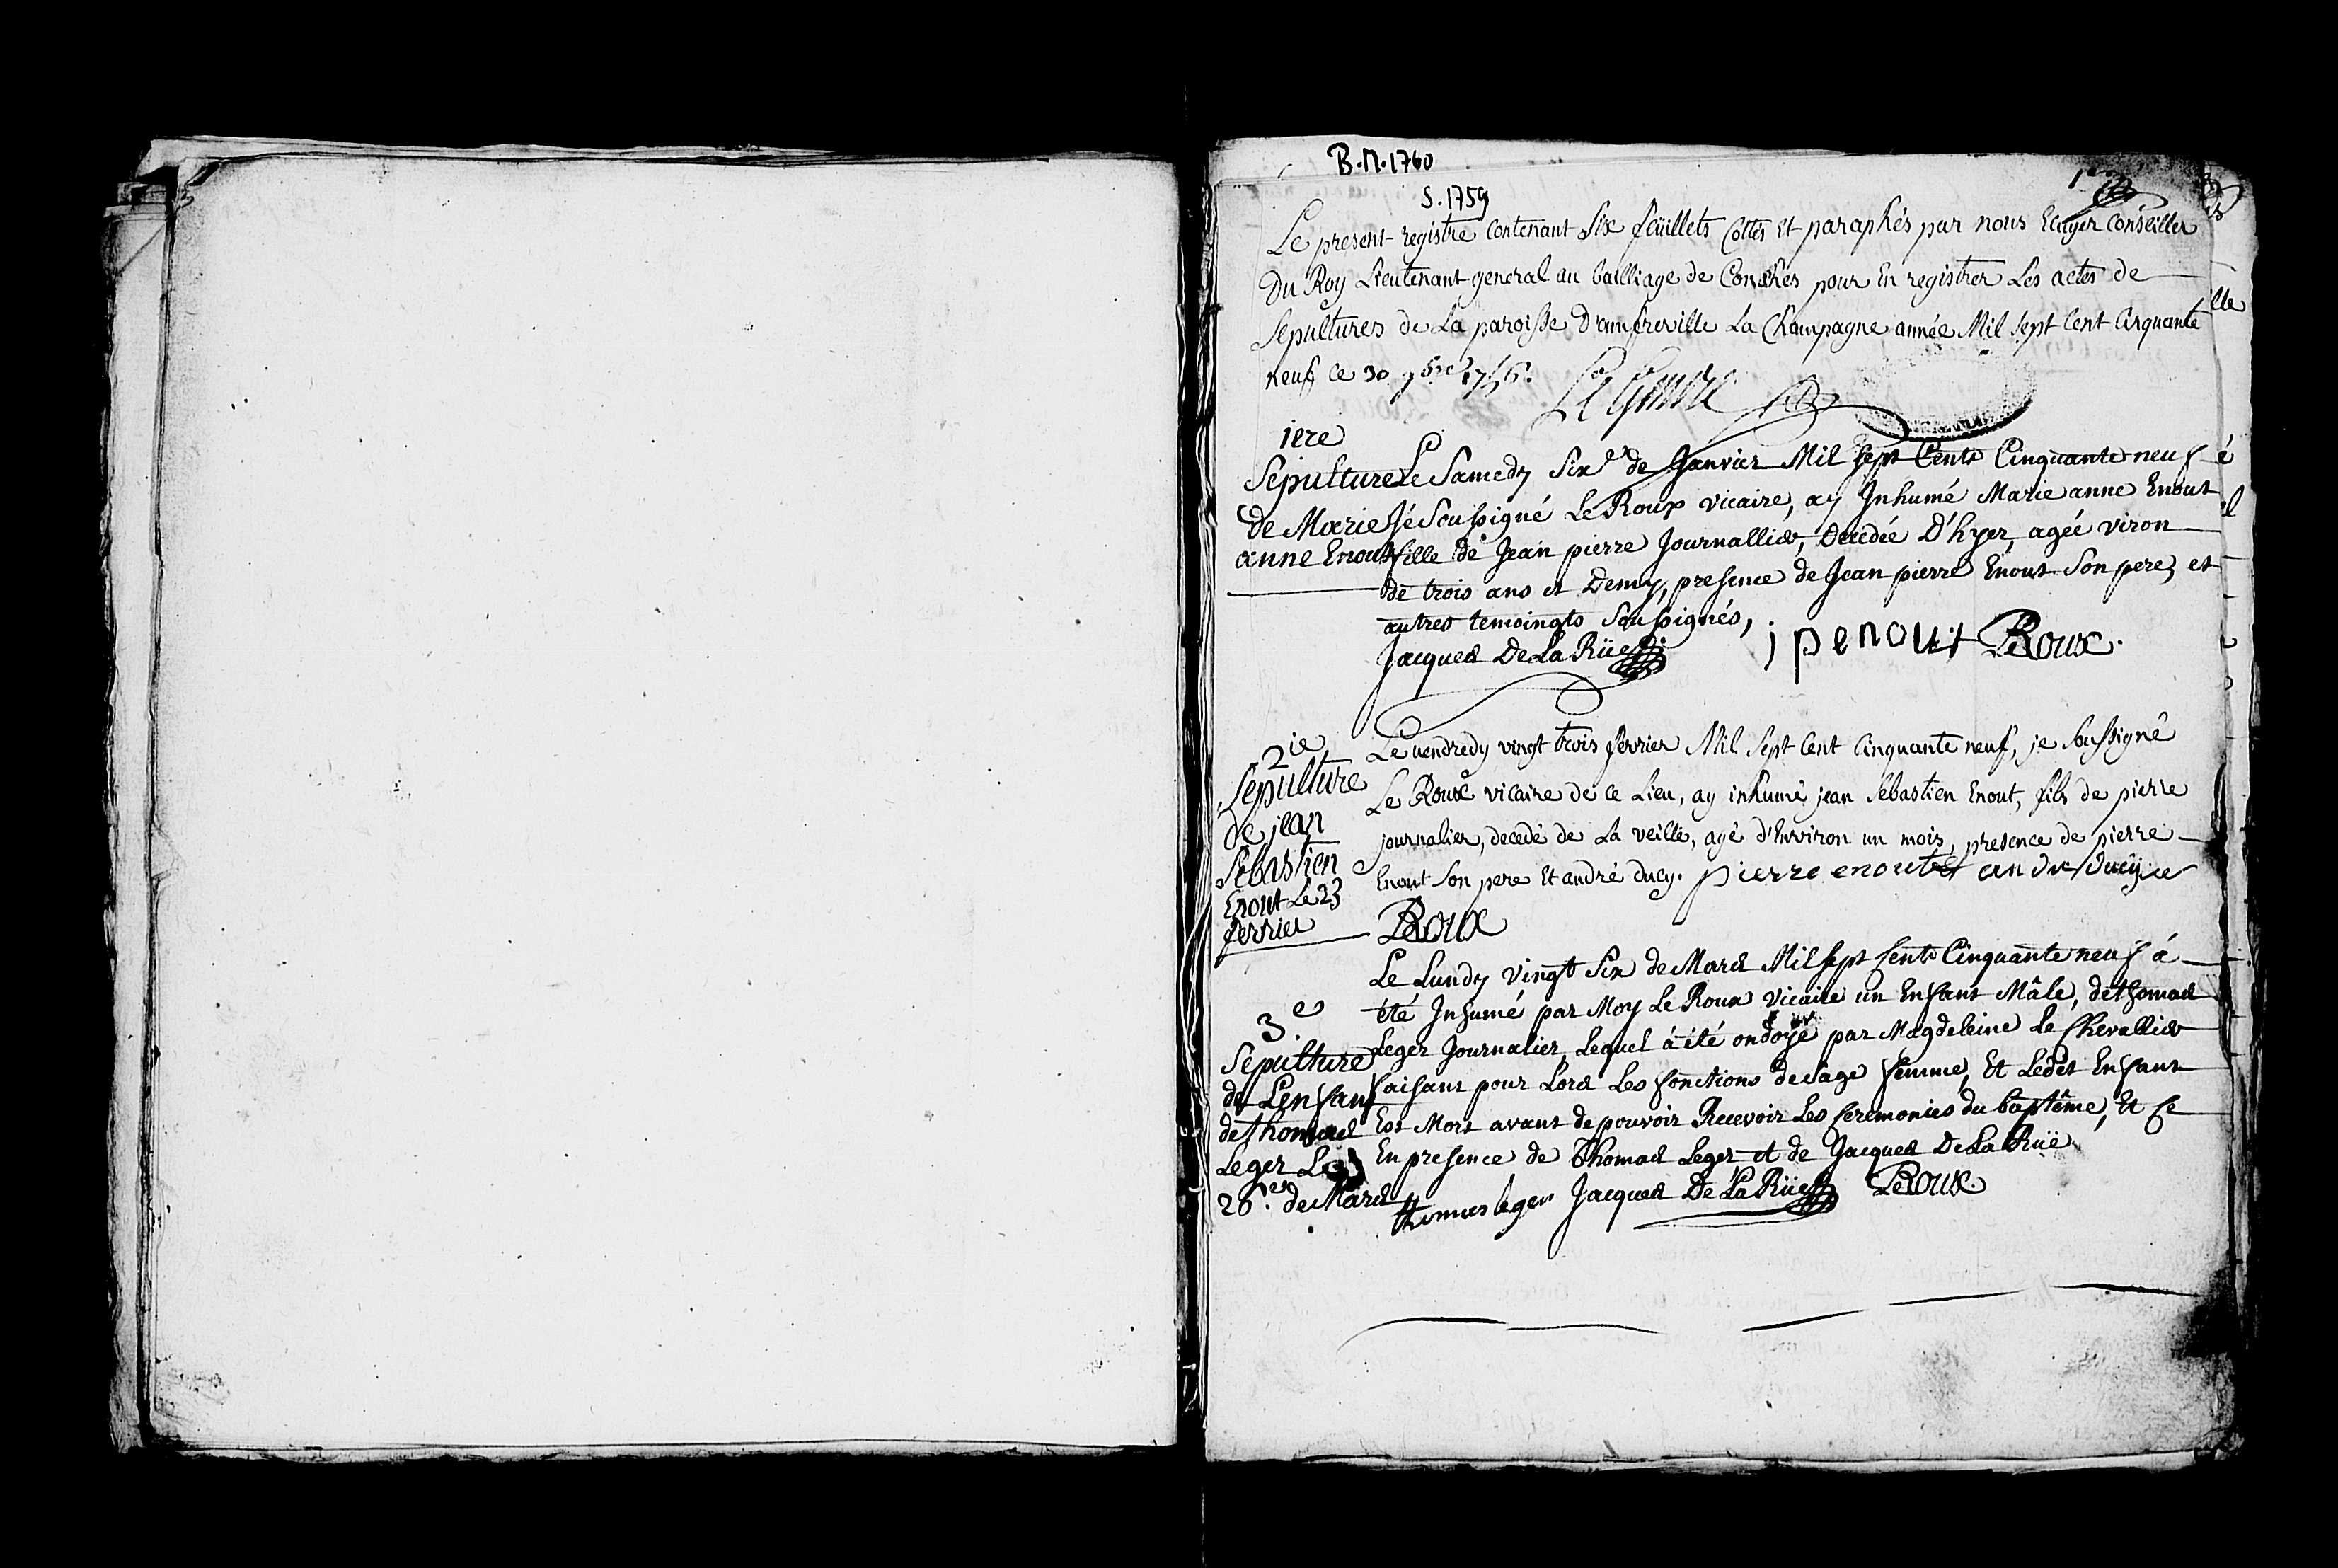 B.M.1760
S.1759
1er
Le present registre contenant Six feüillets Cottés Et paraphés par nous Ecuyer Conseiller
Du Roy Lieutenant general au bailliage de Conches pour En registrer Les actes de
Sepultures de La paroisse D'amfreville La Champagne année Mil sept Cent Cinquante
neuf ce 30 9bre 1756.
1ere
Sepulture
de Marie
anne Enout
Le Samedy Six de Janvier Mil sept Cents Cinquante neuf
Jé Soussigné Le Roux vicaire, ay Inhumé Marie anne Enout
fille de Jean pierre Journallier, Decedée D'hyer, agée viron
de trois ans et Demy, presence de Jean pierre Enout Son pere, et
autres temoingts Soussignés,
Jacques De La Rüe
j p enout
LeRoux.
2ie
Sepulture
de jean
Sebastien
Enout Le 23
fevrier
Le vendredy vingt trois fevrier Mil Sept Cent Cinquante neuf, je soussigné
Le Roux vicaire de ce Lieu, ay inhumé jean Sebastien Enout, fils de pierre
journalier, decedé de La veille, agé d'Environ un mois, presence de pierre
Enout Son pere Et andré ducy. pierre enout
LeRoux
3.e
Sepulture
de Lenfant
de Thomas
Leger Le
26. de Mars
Le Lundy vingt Six de Mars Mil sept Cents Cinquante neuf á
été Inhumé par Moy Le Roux vicaire un Enfant Mâle, de thomas
Leger Journalier, Lequel á été ondoyé par Magdeleine Le Chevallier
faisant pour Lors Les fonctions de Sage femme, Et Ledet Enfant
Est Mort avant de pouvoir Recevoir Les Ceremonies du baptême, Et Ce
En presence de Thomas Leger et de Jacques De La Rüe
thomas leger Jacques De La Rüe LeRoux